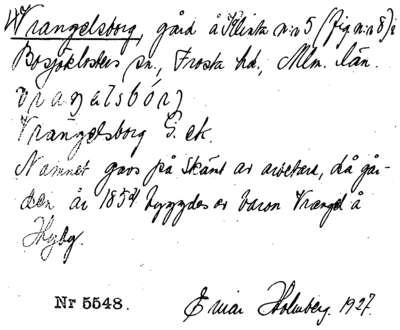 Wrangelsborg, gård å Klinta n:o 5 (fig n:o 8) i
Bosjöklosters sn., Frosta hd., Mlm. län.
vraŋəlsbórj
Vrangelsborg G. ek.
Namnet gavs på skämt av arbetare, då går-
den år 1854 byggdes av baron Vrangel å
Hyby.
Nr 5548. Einar Holmberg. 1927.